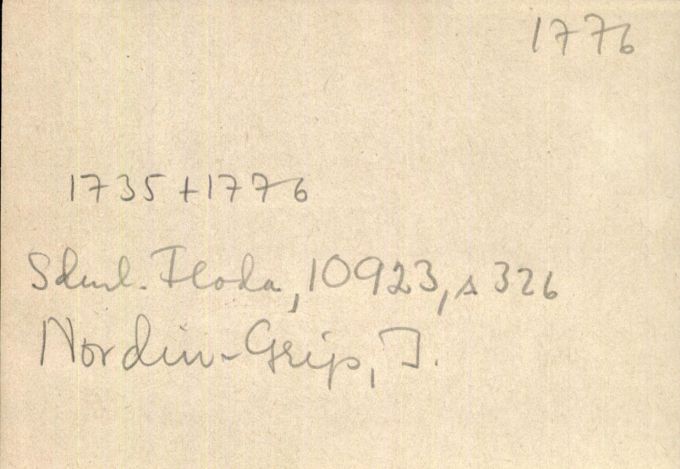 1776
1735+1776
Sdml. Floda, 10923, s 326
Nordin-Grip, I.